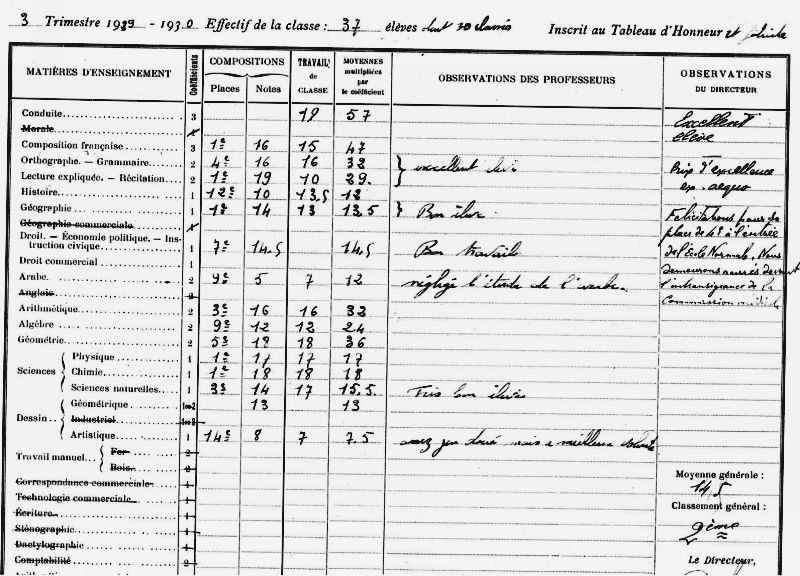 3 Trimestre 1929 - 1930 Effectif de la classe : 37 élèves dont 30 classés Inscrit au Tableau d'Honneur et
MATIÈRES D'ENSEIGNEMENT Coefficients COMPOSITIONS Places Notes TRAVAIL de CLASSE MOYENNES multipliées par le coefficient OBSERVATIONS DES PROFESSEURS OBSERVATIONS DU DIRECTEUR
Conduite 3 19 57 Excellent
Morale élève
Composition française 3 1e 16 15 47
Orthographe. — Grammaire 2 4e 16 16 32 } excellent élève Prix d'excellence
Lecture expliquée. — Récitation 2 1e 19 10 29. ex. aequo
Histoire 1 12e 10 13,5 12
Géographie 1 1e 14 13 13.5 } Bon élève Félicitations pour sa
Géographie commerciale place de 4e à l'entrée
Droit. — Économie politique. — Instruction civique 1 7e 14.5 14.5 Bon travail de l'Ecole Normale. Nous
Droit commercial 1 demeurons navrés devant
Arabe 2 9e 5 7 12 néglige l'étude de l'arabe. l'intransigeance de la
Anglais 2 Commission médicale
Arithmétique 2 3e 16 16 32
Algèbre 2 9e 12 12 24
Géométrie 2 5e 18 18 36
Sciences { Physique 1 1e 17 17 17
Chimie 1 1e 18 18 18
Sciences naturelles 1 3e 14 17 15.5. Très bon élève
Dessin { Géométrique 1-2 13 13
Industriel 1-2
Artistique 1 14e 8 7 7.5 assez peu doué mais a meilleure volonté
Travail manuel { Fer 2
Bois 2
Correspondance commerciale 1 Moyenne générale :
14,5
Technologie commerciale 1 Classement général :
Écriture 1 2ème
Sténographie 1
Dactylographie 1
Comptabilité 2 Le Directeur,